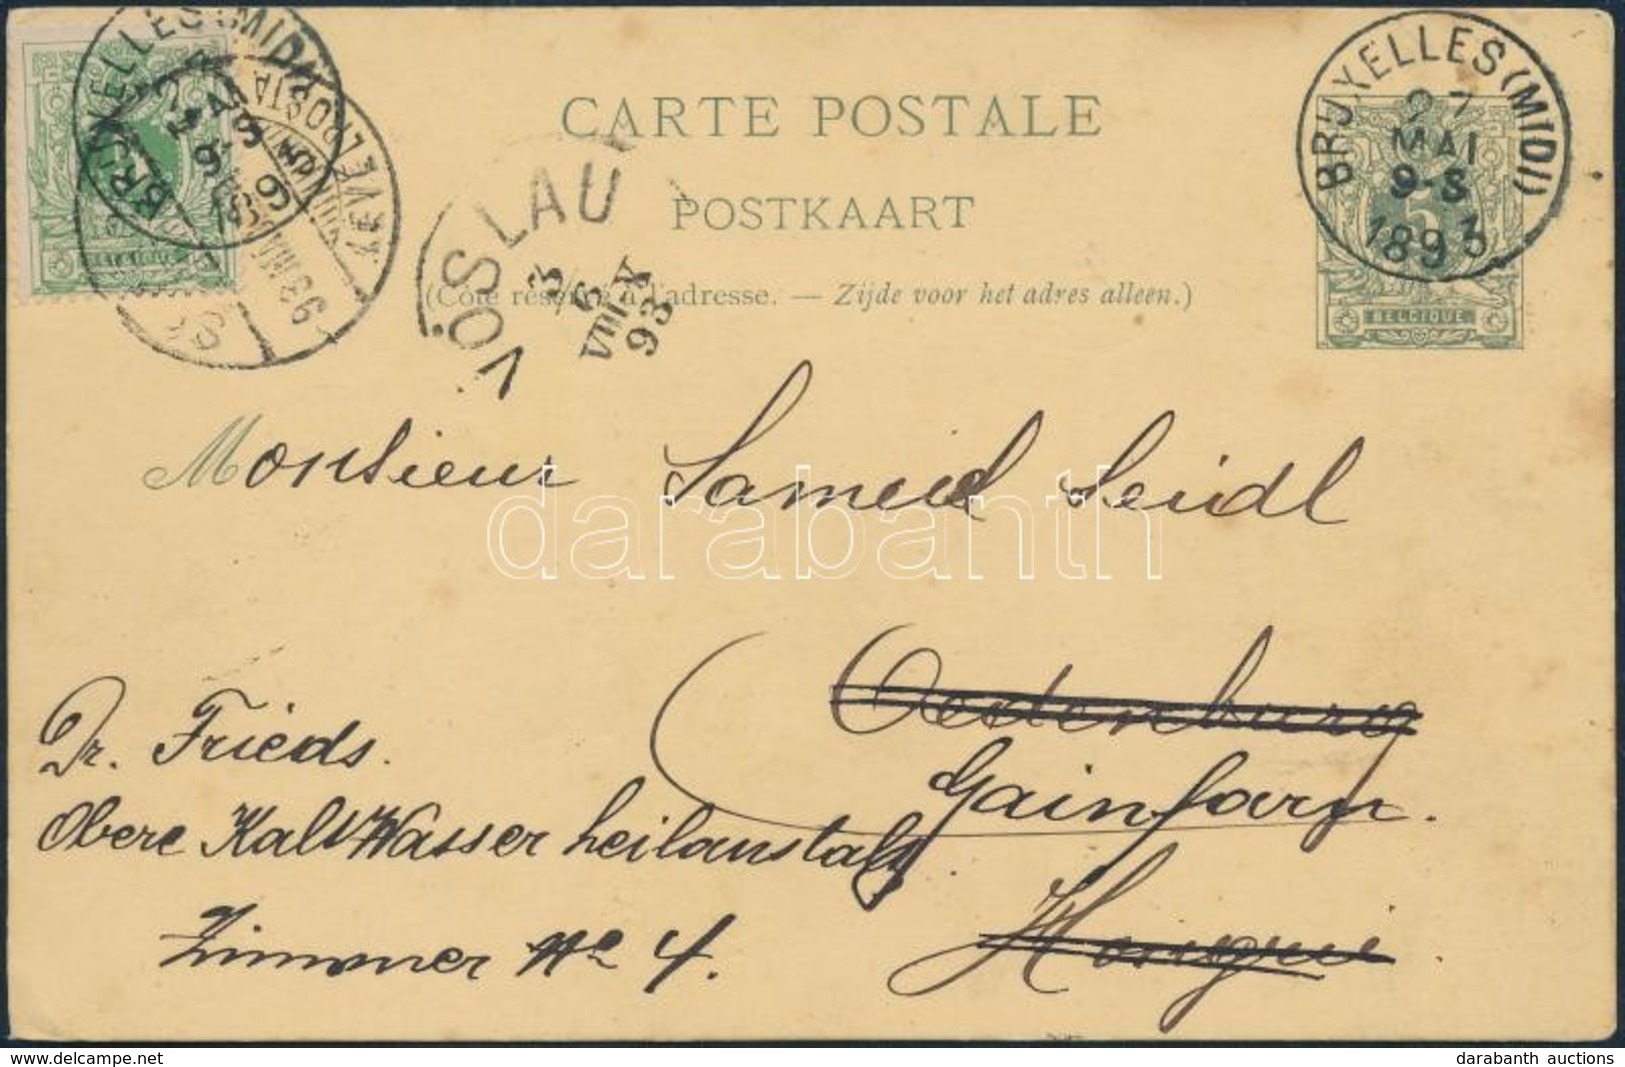 CARTE POSTALE
POSTKAART
(Côté réservé à l'adresse. — Zijde voor het adres alleen.)
BRUXELLES (MIDI)
27
MAI
9-S
1893
5
BELGIQUE
BRUXELLES (MIDI)
BELGIQUE
VÖSLAU
3
6
93
Monsieur Samuel Seidl
darabanth
Oedenburg
Gainfarn.
Hongrie.
Dr. Frieds.
Obere KaltWasser heilanstalt.
Zimmer No 4.
darabanth.com
darabanth auctions